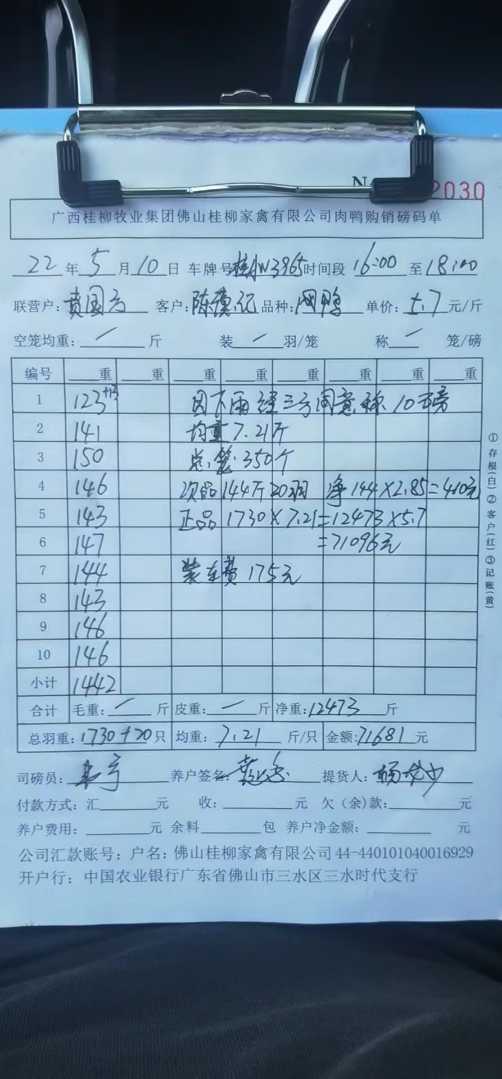 2030
广西桂柳牧业集团佛山桂柳家禽有限公司肉鸭购销磅码单
22 年 5 月 10 日 车牌号 W3965 时间段 16:00 至 18:00
联营户: 客户: 陈 记 品种: 鸭 单价: 5.7 元/斤
空笼均重: 一 斤 装 一 羽/笼 称 一 笼/磅
编号 重 重 重 重 重 重 重 重
1 123 因下雨经三方同意称10磅
2 141 均重7.21斤
3 150 总笼:350个
4 146 次品144斤20羽 净144×2.85=410元
5 143 正品 1730×7.21=12473×5.7
6 147 =71096元
7 144 装车费 175元
8 143
9 146
10 146
小计 1442
合计 毛重: 一 斤 皮重: 一 斤 净重: 12473 斤
总羽重: 1730+20 只 均重: 7.21 斤/只 金额: 71681 元
司磅员: 养户签名: 提货人: 杨
付款方式: 汇 元 收: 元 欠(余)款: 元
养户费用: 元 余料 包 养户净金额: 元
公司汇款账号: 户名: 佛山桂柳家禽有限公司 44-440101040016929
开户行: 中国农业银行广东省佛山市三水区三水时代支行
①存根(白)②客户(红)③记账(黄)